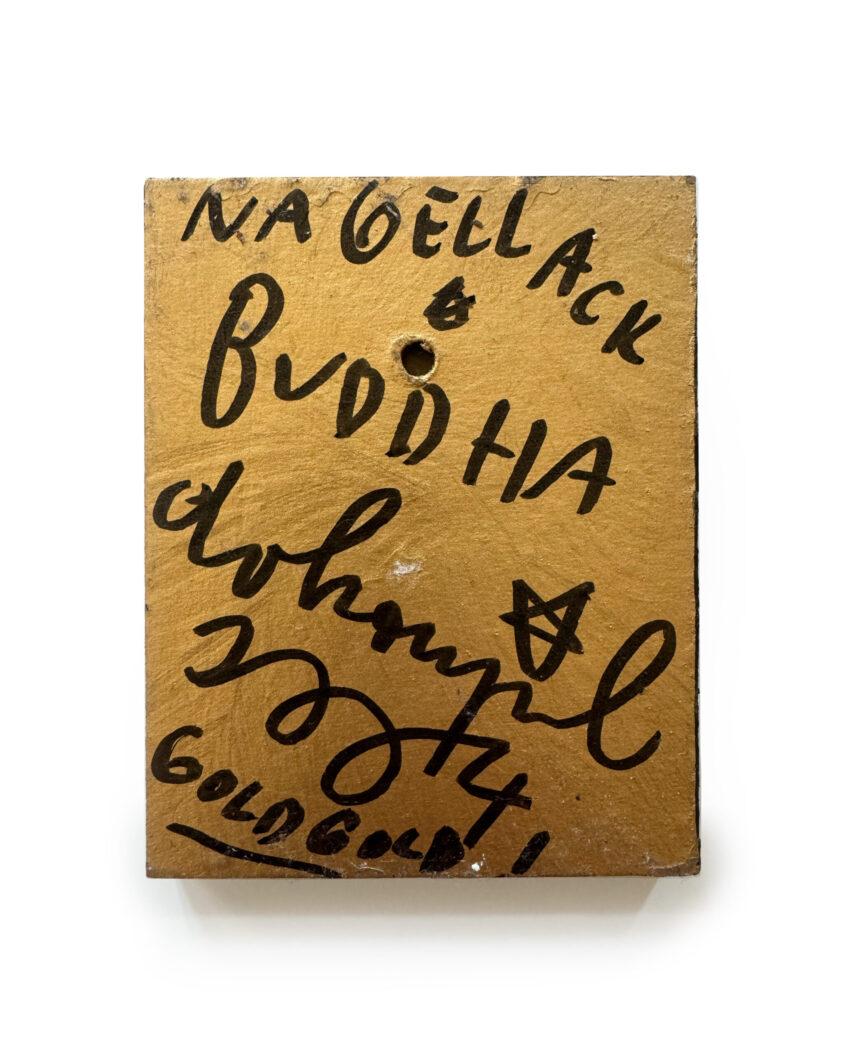 NAGELLACK
&
BUDDHA
2024
GOLDGOLD!